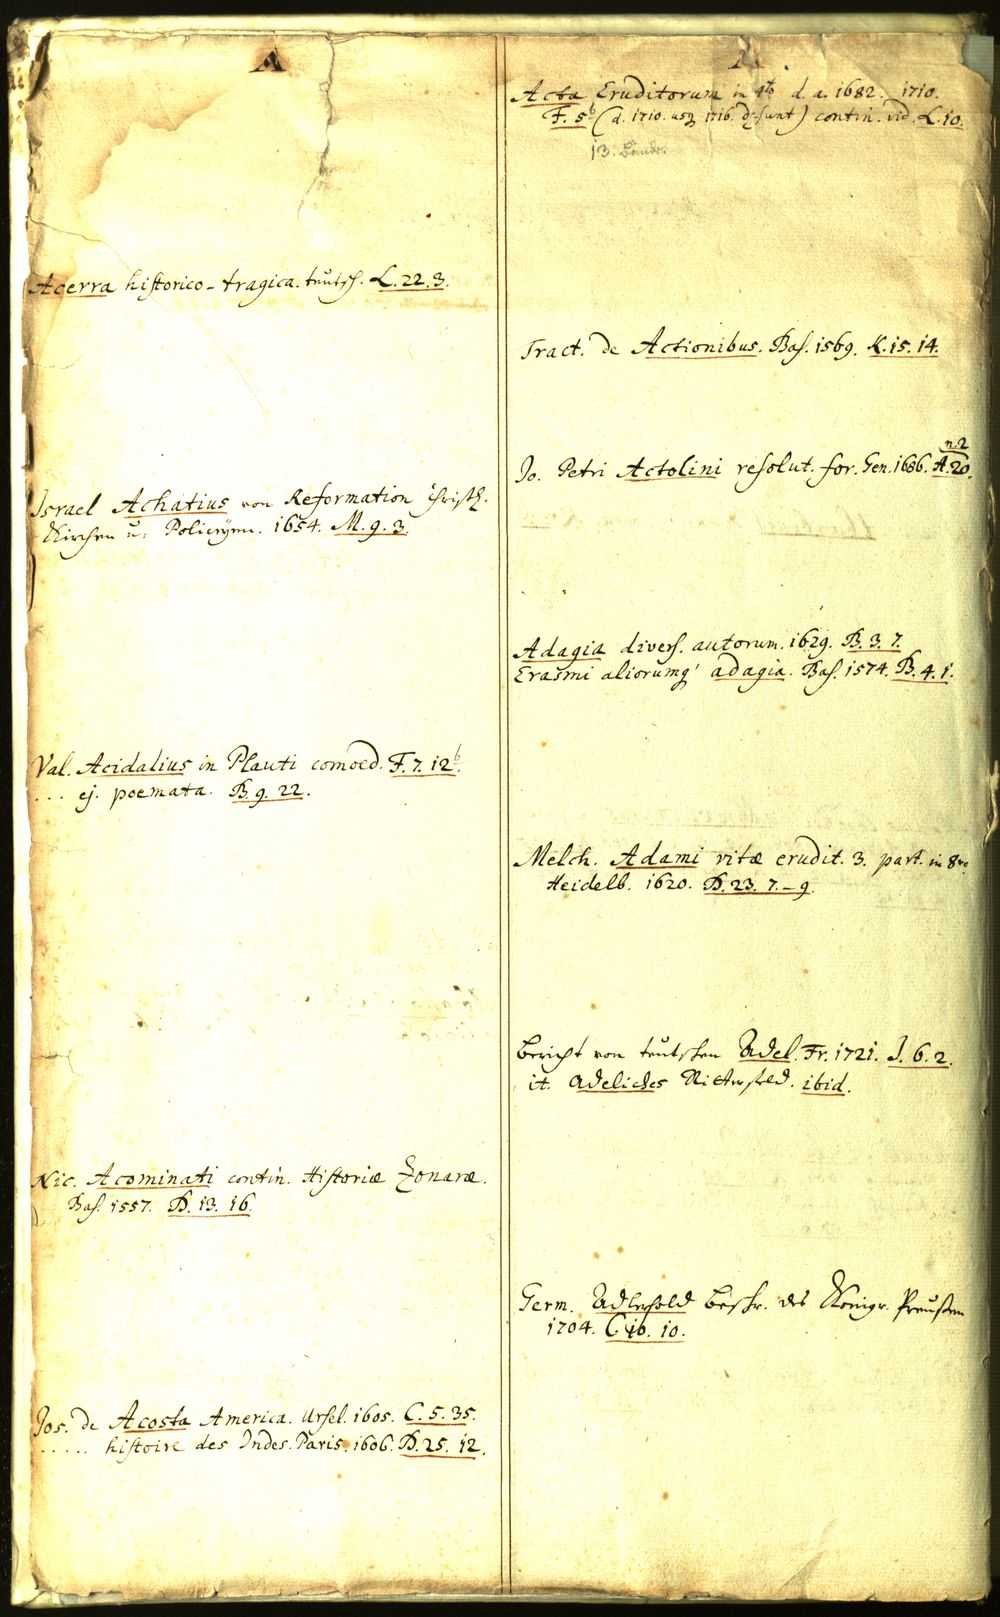 A
Acerra historico-tragica. teutsch. L. 22. 3.
Israel Achatius von Reformation christl.
Kirchen u. Policeyen. 1654. M. 9. 3.
Val. Acidalius in Plauti comoed. F. 7. 12b.
... ej. poemata. B. 9. 22.
Nic. Acominati contin. Historiæ Zonaræ.
Bas. 1557. D. 13. 16.
Jos. de Acosta America. Ursel. 1605. C. 5. 35.
..... histoire des Indes. Paris. 1606. D. 25. 12.
A
Acta Eruditorum in 4to d. a. 1682. 1710.
F. 5b (d. 1710. usq 1716. desunt) contin. vid. L. 10.
13. Bände.
Tract. de Actionibus. Bas. 1569. K. 15. 14.
n. 2
Jo. Petri Actolini resolut. for. Gen. 1686. A. 20.
Adagia divers. autorum. 1629. B. 3. 7.
Erasmi aliorumq' adagia. Bas. 1574. B. 4. 1.
Melch. Adami vitæ erudit. 3. part. in 8vo.
Heidelb. 1620. D. 23. 7.-9.
Bericht von teutschen Adel. Fr. 1721. J. 6. 2.
it. Adeliches Ritterfeld. ibid.
Germ. Adlerhold beschr. des Königr. Preußen
1704. C. 10.